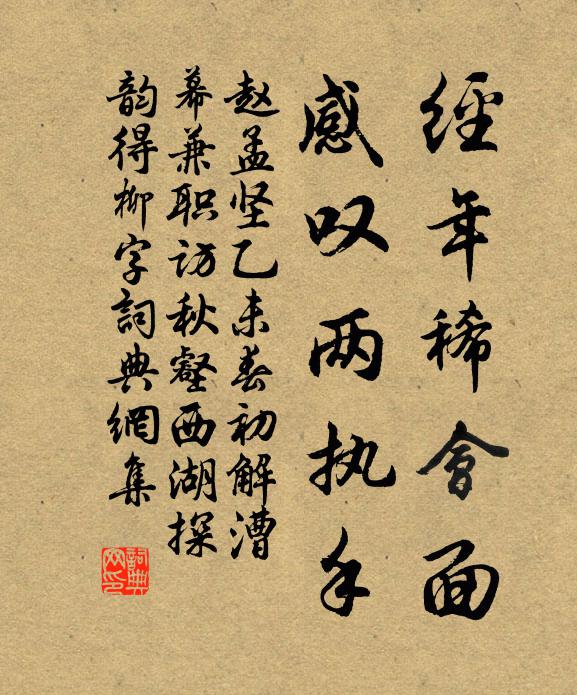 經年稀會面
感叹两执手
赵孟坚乙未春初解漕
幕兼职访秋壑西湖探
韵得柳字詞典網集
詞典网印